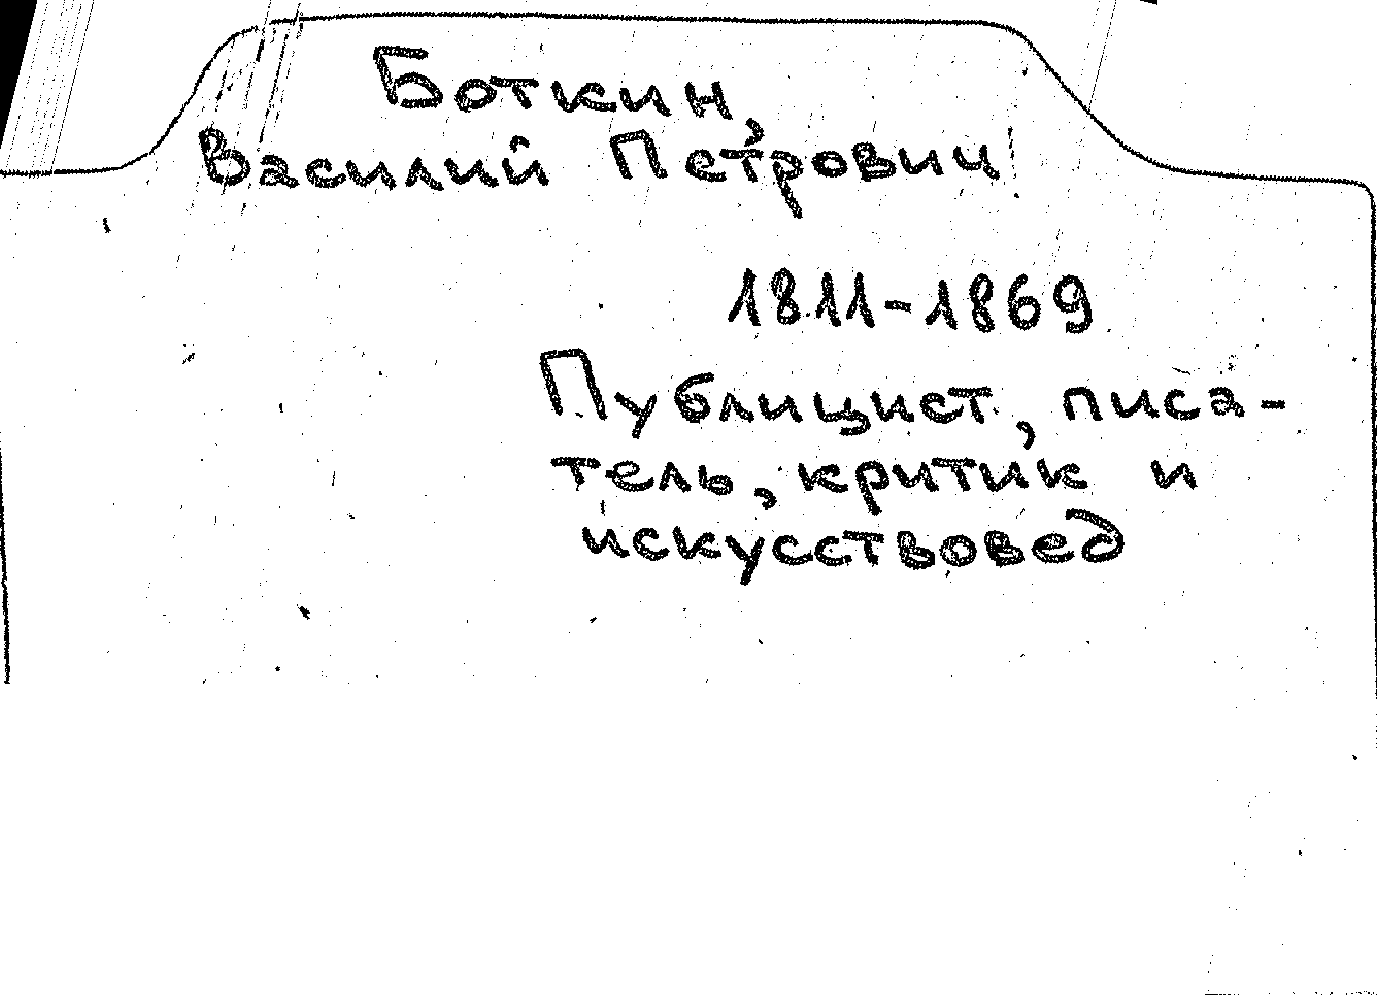 Боткин,
Василий Петрович
1811-1869
Публицист, писа-
тель, критик и
искусствовед